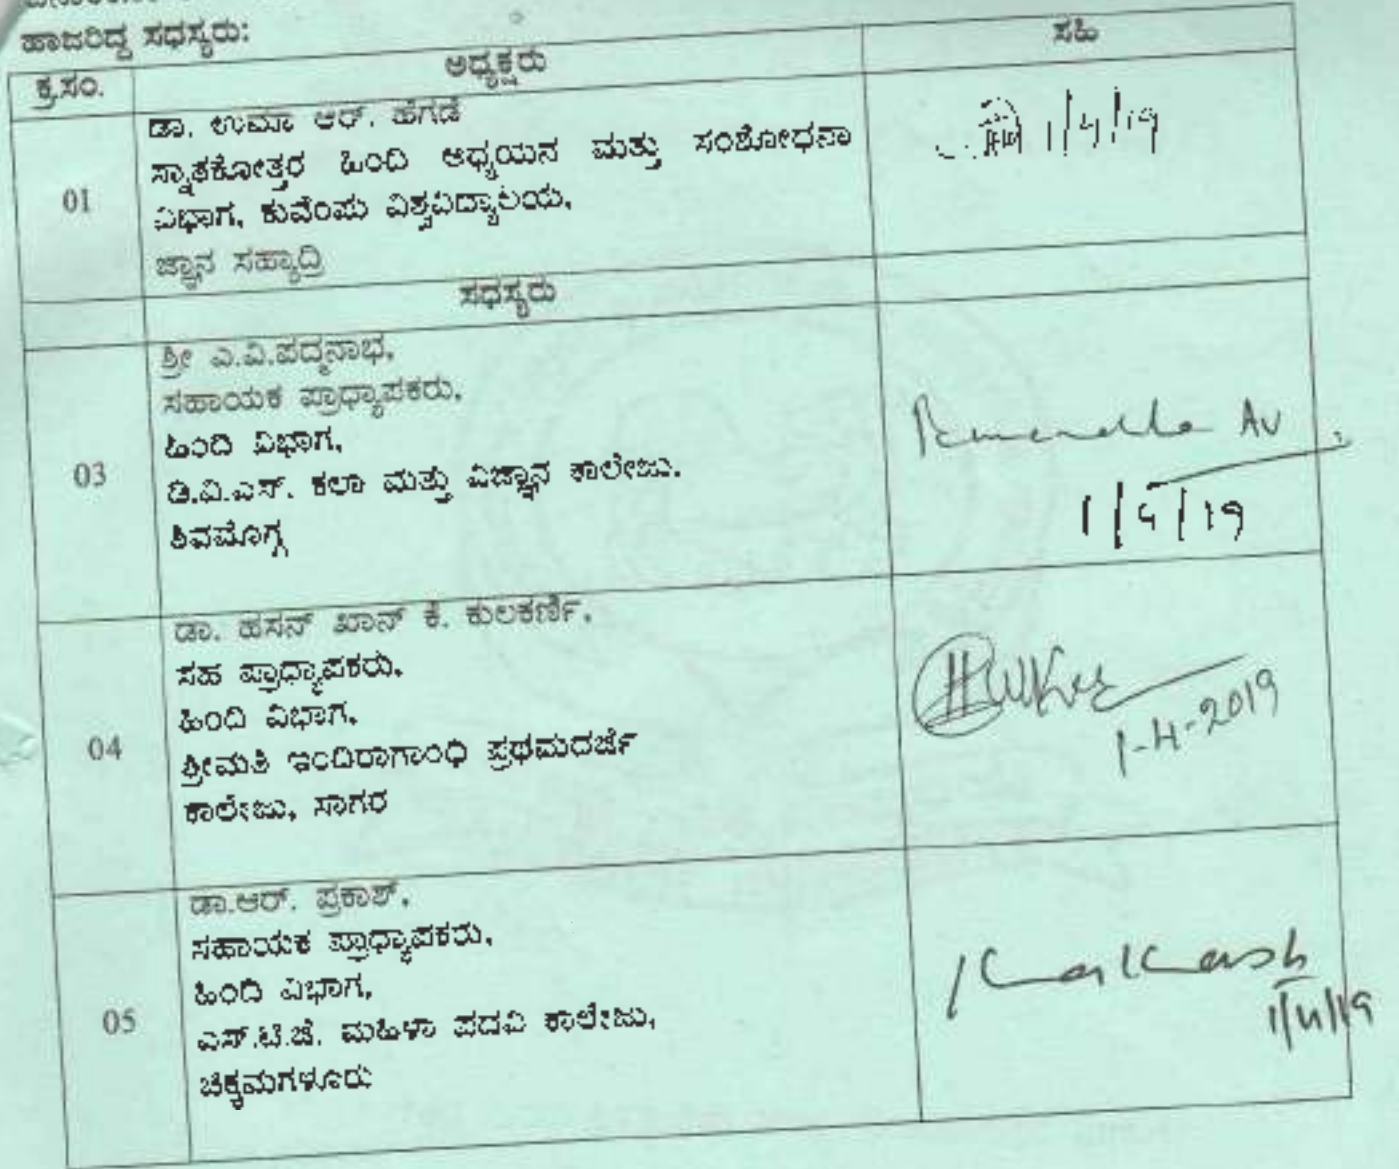 ಹಾಜರಿದ್ದ ಸಧಸ್ಯರು:
ಕ್ರ.ಸಂ. ಅಧ್ಯಕ್ಷರು ಸಹಿ
01
ಡಾ. ಉಮಾ ಆರ್. ಹೆಗಡೆ
ಸ್ನಾತಕೋತ್ತರ ಹಿಂದಿ ಅಧ್ಯಯನ ಮತ್ತು ಸಂಶೋಧನಾ
ವಿಭಾಗ, ಕುವೆಂಪು ವಿಶ್ವವಿದ್ಯಾಲಯ,
ಜ್ಞಾನ ಸಹ್ಯಾದ್ರಿ
1/4/19
ಸಧಸ್ಯರು
03
ಶ್ರೀ ಎ.ವಿ.ಪದ್ಮನಾಭ,
ಸಹಾಯಕ ಪ್ರಾಧ್ಯಾಪಕರು,
ಹಿಂದಿ ವಿಭಾಗ,
ಡಿ.ವಿ.ಎಸ್. ಕಲಾ ಮತ್ತು ವಿಜ್ಞಾನ ಕಾಲೇಜು.
ಶಿವಮೊಗ್ಗ
AV
1/4/19
04
ಡಾ. ಹಸನ್ ಖಾನ್ ಕೆ. ಕುಲಕರ್ಣಿ,
ಸಹ ಪ್ರಾಧ್ಯಾಪಕರು,
ಹಿಂದಿ ವಿಭಾಗ,
ಶ್ರೀಮತಿ ಇಂದಿರಾಗಾಂಧಿ ಪ್ರಥಮದರ್ಜೆ
ಕಾಲೇಜು, ಸಾಗರ
1-4-2019
05
ಡಾ.ಆರ್. ಪ್ರಕಾಶ್,
ಸಹಾಯಕ ಪ್ರಾಧ್ಯಾಪಕರು,
ಹಿಂದಿ ವಿಭಾಗ,
ಎಸ್.ಟಿ.ಜೆ. ಮಹಿಳಾ ಪದವಿ ಕಾಲೇಜು,
ಚಿಕ್ಕಮಗಳೂರು
1/4/19